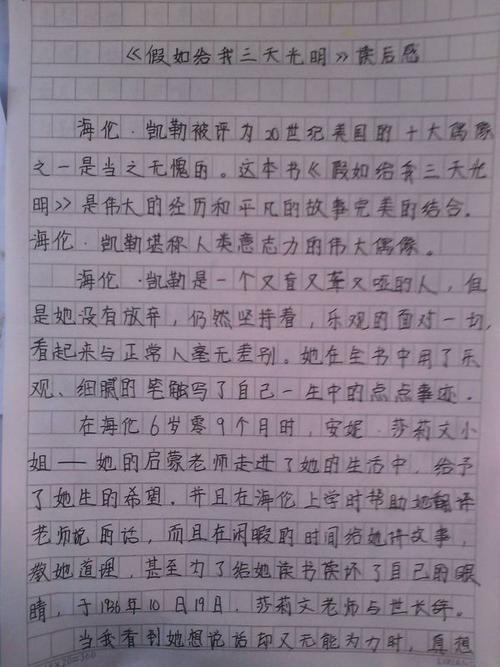 《假如给我三天光明》读后感
海伦·凯勒被评为20世纪美国的十大偶像
之一是当之无愧的。这本书《假如给我三天光
明》是伟大的经历和平凡的故事完美的结合。
海伦·凯勒堪称人类意志力的伟大偶像。
海伦·凯勒是一个又盲又聋又哑的人，但
是她没有放弃，仍然坚持着，乐观的面对一切，
看起来与正常人毫无差别。她在全书中用了乐
观、细腻的笔触写了自己一生中的点点事迹。
在海伦6岁零9个月时，安妮·莎莉文小
姐——她的启蒙老师走进了她的生活中，给予
了她生的希望。并且在海伦上学时帮助她翻译
老师说的话，而且在闲暇的时间给她讲故事，
教她道理，甚至为了给她读书读坏了自己的眼
睛，于1936年10月19日，莎莉文老师与世长辞。
当我看到她想说话却又无能为力时，真想